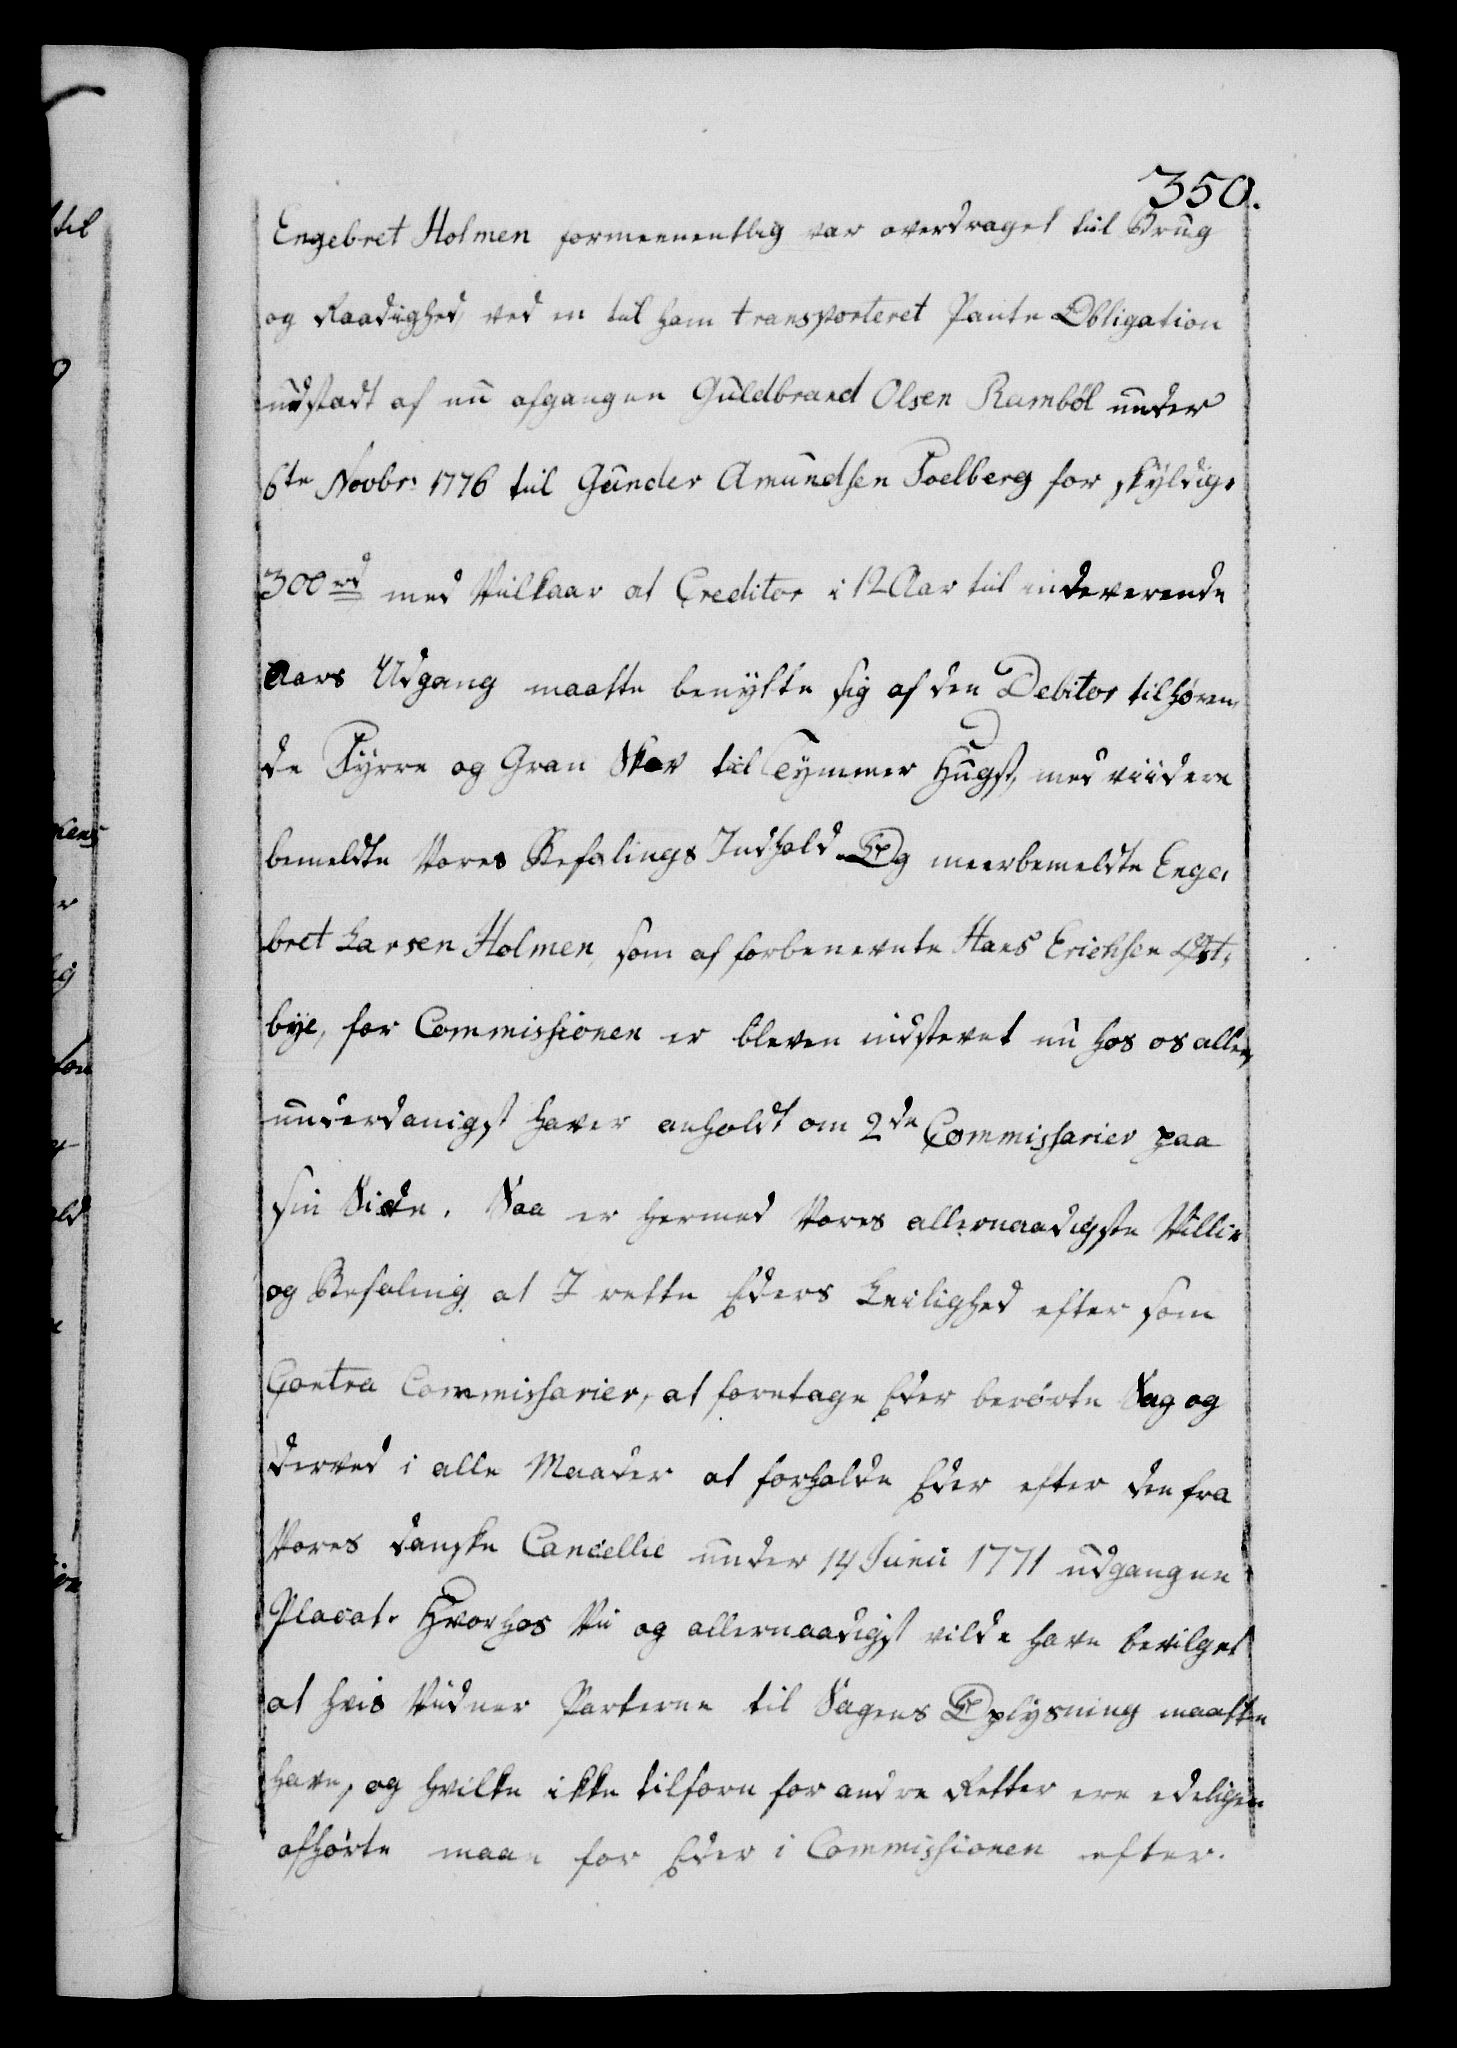 350.
Engebret Holmen formeenentlig var overdraget til Brug
og Raadighed, ved en til ham transporteret Pante Obligation
udstædt af nu afgangne Guldbrand Olsen Ramböl under
6te Novbr: 1776 til Gunder Amundsen Poelberg for skyldige
300 rd med Vilkaar at Creditor i 12 Aar til indeverende
Aars Udgang maatte benytte sig af den Debitor tilhøren,
de Fyrre og Gran Skov til Tymmer Hugst, med viidere
bemeldte Vores Befalings Indhold. Og meerbemeldte Enge,
bret Larsen Holmen, som af forbenevnte Hans Erichsen Øst,
bye, for Commissionen er bleven indstevnt nu hos os aller,
underdanigst haver anholdt om 2de Commissarier paa
sin Side. Saa er hermed Vores allernaadigste Villie
og Befaling, at I rette Eders Leilighed efter som
Contra Commissarier, at foretage Eder berørte Sag og
derved i alle Maader at forholde Eder efter den fra
Vores danske Cancellie under 14 Junii 1771 udgangne
Placat. Hvorhos Vii og allernaadigst vilde have bevilget
at hvis Vidner Parterne til Sagens Oplysning maatte
have, og hvilke ikke tilforn for andre Retter ere edeligen
afhørte maae for Eder i Commissionen efter.